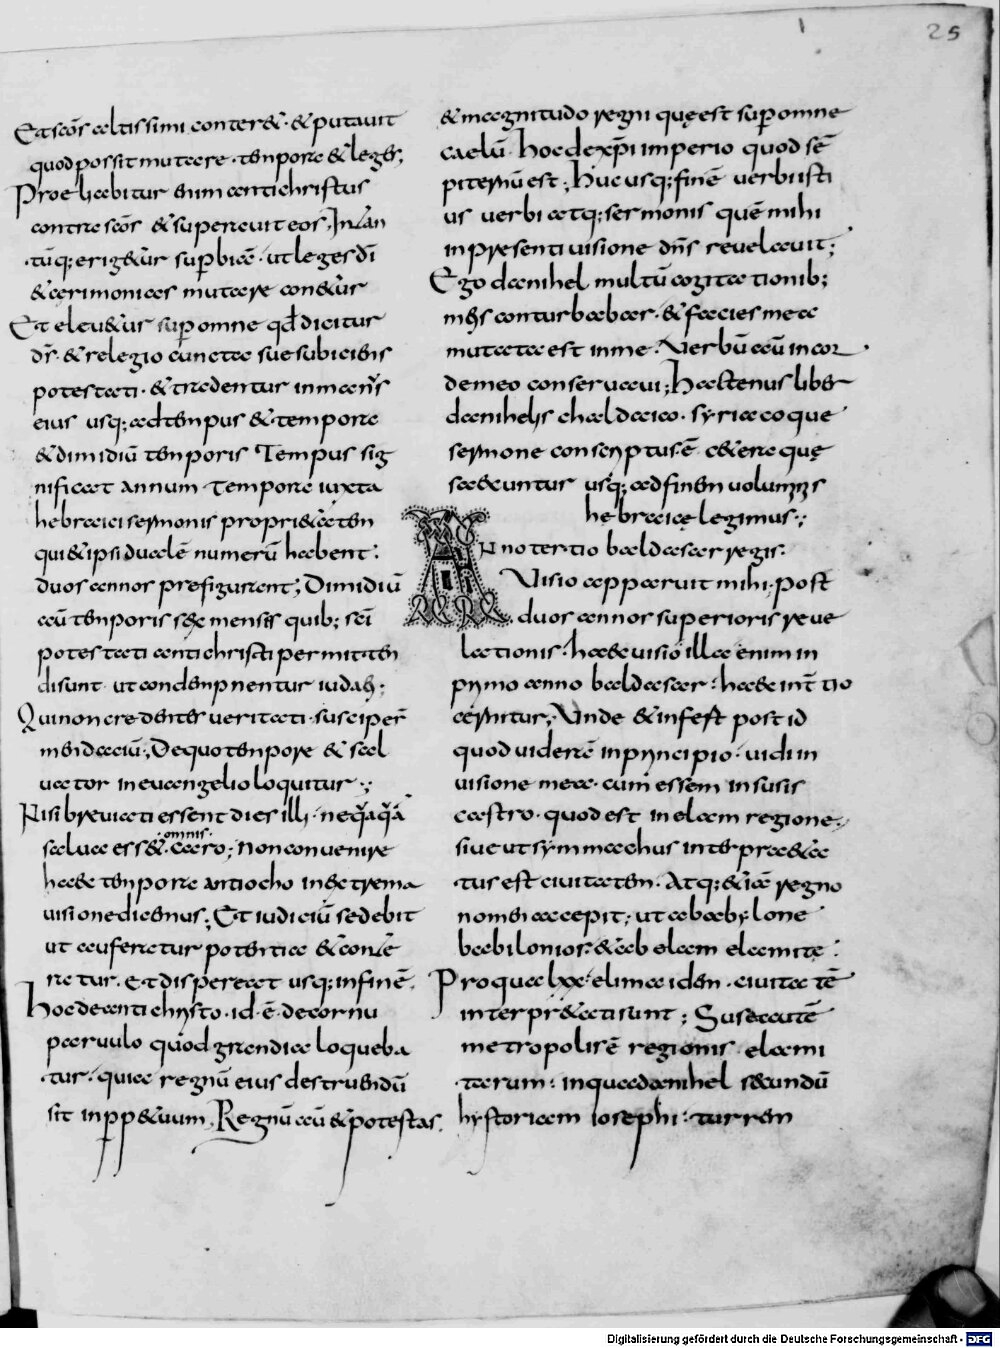 25
Et scōs altissimi conteret · & putavit
quod possit mutare · tempora & leges;
Pro&#101; habitur enim antichristus
contra scōs & superavit eos, In tan
tūq; erig&ur superbiā · ut leges dī
& cerimonias mutare con&ur
Et elev&ur suꝑ omne qđ dicitur
dr̄ · & relegio cuncta sue subiciens
potestati · & tradentur in man̄s
eius usq; ad tempus & tempora
& dimidiū temporis Tempus sig
nificat annum Tempora iuxta
hebraici sermonis propri&atem
qui & ipsi dualē numerū habent:
duos annos prefigurant; Dimidiū
aū temporis sex menses quib; scī
potestati antichristi permitten
di sunt ut condempnentur iudaei;
Qui non credentes veritati · susciper̄
mendaciū; De quo tempore & sal
vator in evangelio loquitur ·;
Nisi breviati essent dies illi · neq̄aq̄ā
salva ess& · omnis · caro; Non convenire
haec tempora antiocho in extrema
visione dicemus; Et iudiciū sedebit
ut auferatur potentia & conte
ratur · et dispereat usq; in finē ·
Hoc de antichristo · id · ē · de cornu
parvulo quod grandia loqueba
tur · quia regnū eius destruendū
sit in ꝑp&uum, Regnū aū & potestas
& magnitudo regni quę est suꝑ omne
caelū · hoc de xp̄i imperio quod sē
piternū est; Huc usq; finē verbi isti
us verbi atq; sermonis quē mihi
in presenti visione dn̄s revelavit;
Ego danihel multū cogitationib;
meis conturbabar · & facies mea
mutata est in me · Verbū aū in cor
de meo conservavi; Hactenus liber
danihelis chaldaico · syriacoque
sermone conscriptus · ē · c&era quę
secuntur usq; ad finem voluminis
hebraice legimus ·;
ANno tertio baldasar regis ·
Visio apparuit mihi · post
duos annos superioris reve
lationis · haec visio illa enim in
primo anno baldasar · haec int̄ tio
cernitur; Unde & infest post id
quod viderā in principio · vidi in
visione mea · cum essem in susis
castro · quod est in elam regione;
sive ut symmachus interpraeta
tus est civitatem · Atq; & ia regno
nomen accepit; ut a babylone
babilonior̄ · & ab elam elamitę ·
Pro qua lxx · elima iden · civitatē
interpr&ati sunt; Susa autē
metropolis ē regionis elami
tarum · in qua danihel secundū
hystoriam iosephi · turrem
Digitalisierung gefördert durch die Deutsche Forschungsgemeinschaft - DFG